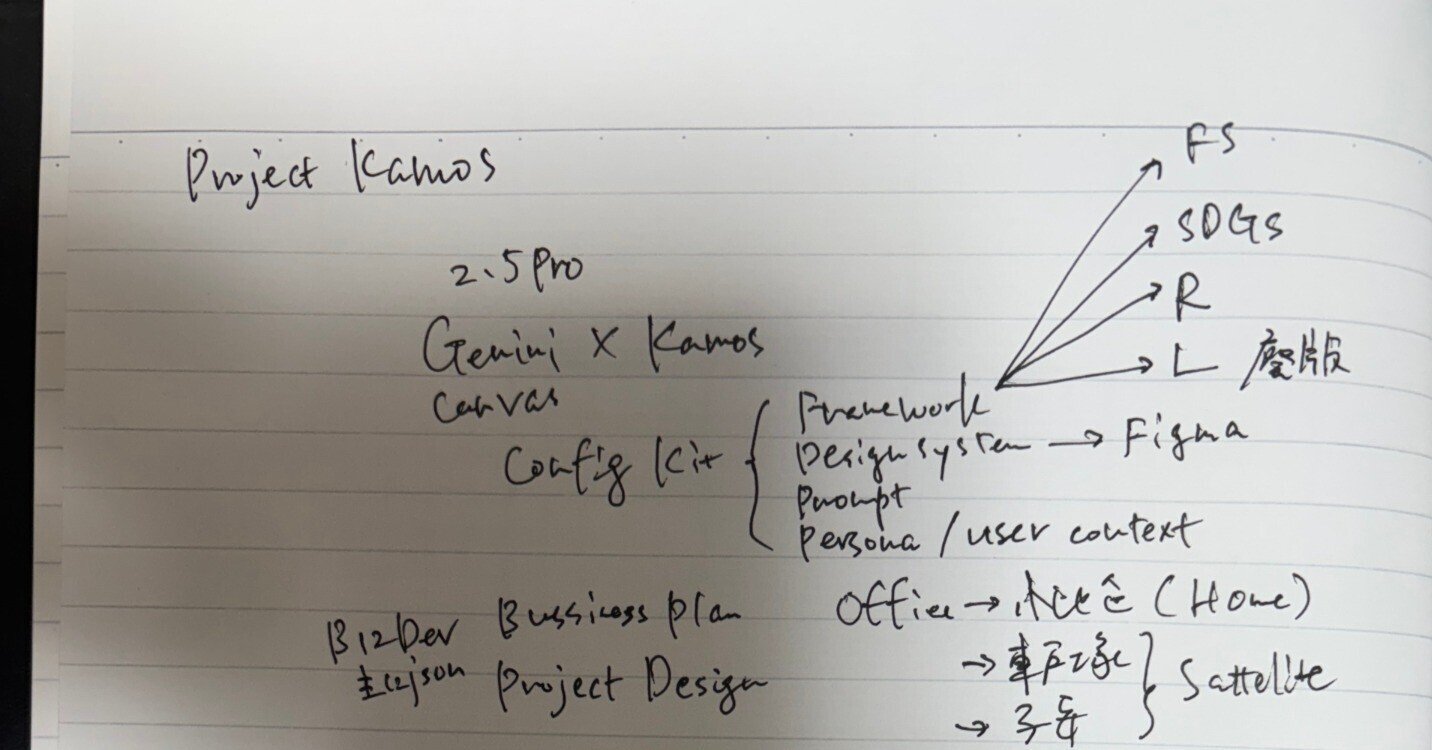 Project Kamos
2.5 Pro
Gemini X Kamos
Canvas
Config Kit
Framework
Design system → Figma
Prompt
Persona / user context
FS
SDGs
R
L 廃版
BizDev Bussiness plan
主にjson Project Design
Office → (Home)
→
→
Sattelite